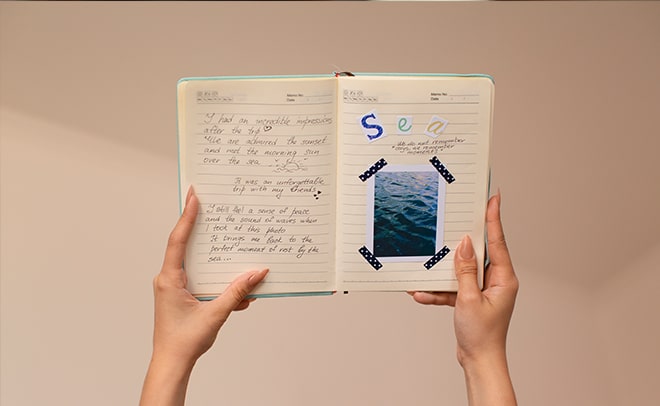 Memo No.
Date
I had an incredible impressions
after the trip
We are admired the sunset
and met the morning sun
over the sea
It was an unforgettable
trip with my friends
I still feel a sense of peace
and the sound of waves when
I look at this photo
It brings me back to the
perfect moment of rest by the
sea...
Memo No.
Date
Sea
We do not remember
days, we remember
moments